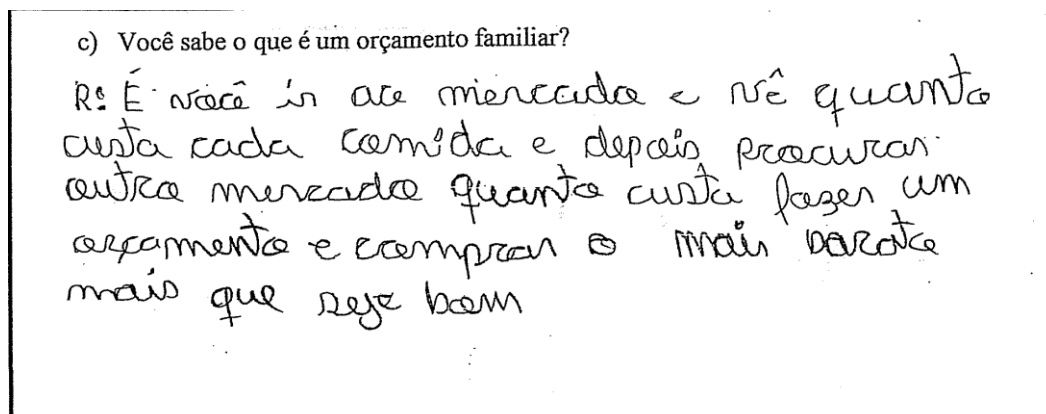 c) Você sabe o que é um orçamento familiar?
R: É você ir ao mercado e vê quanto
custa cada comida e depois procurar
outro mercado quanto custa fazer um
orçamento e comprar o mais barato
mais que seje bom